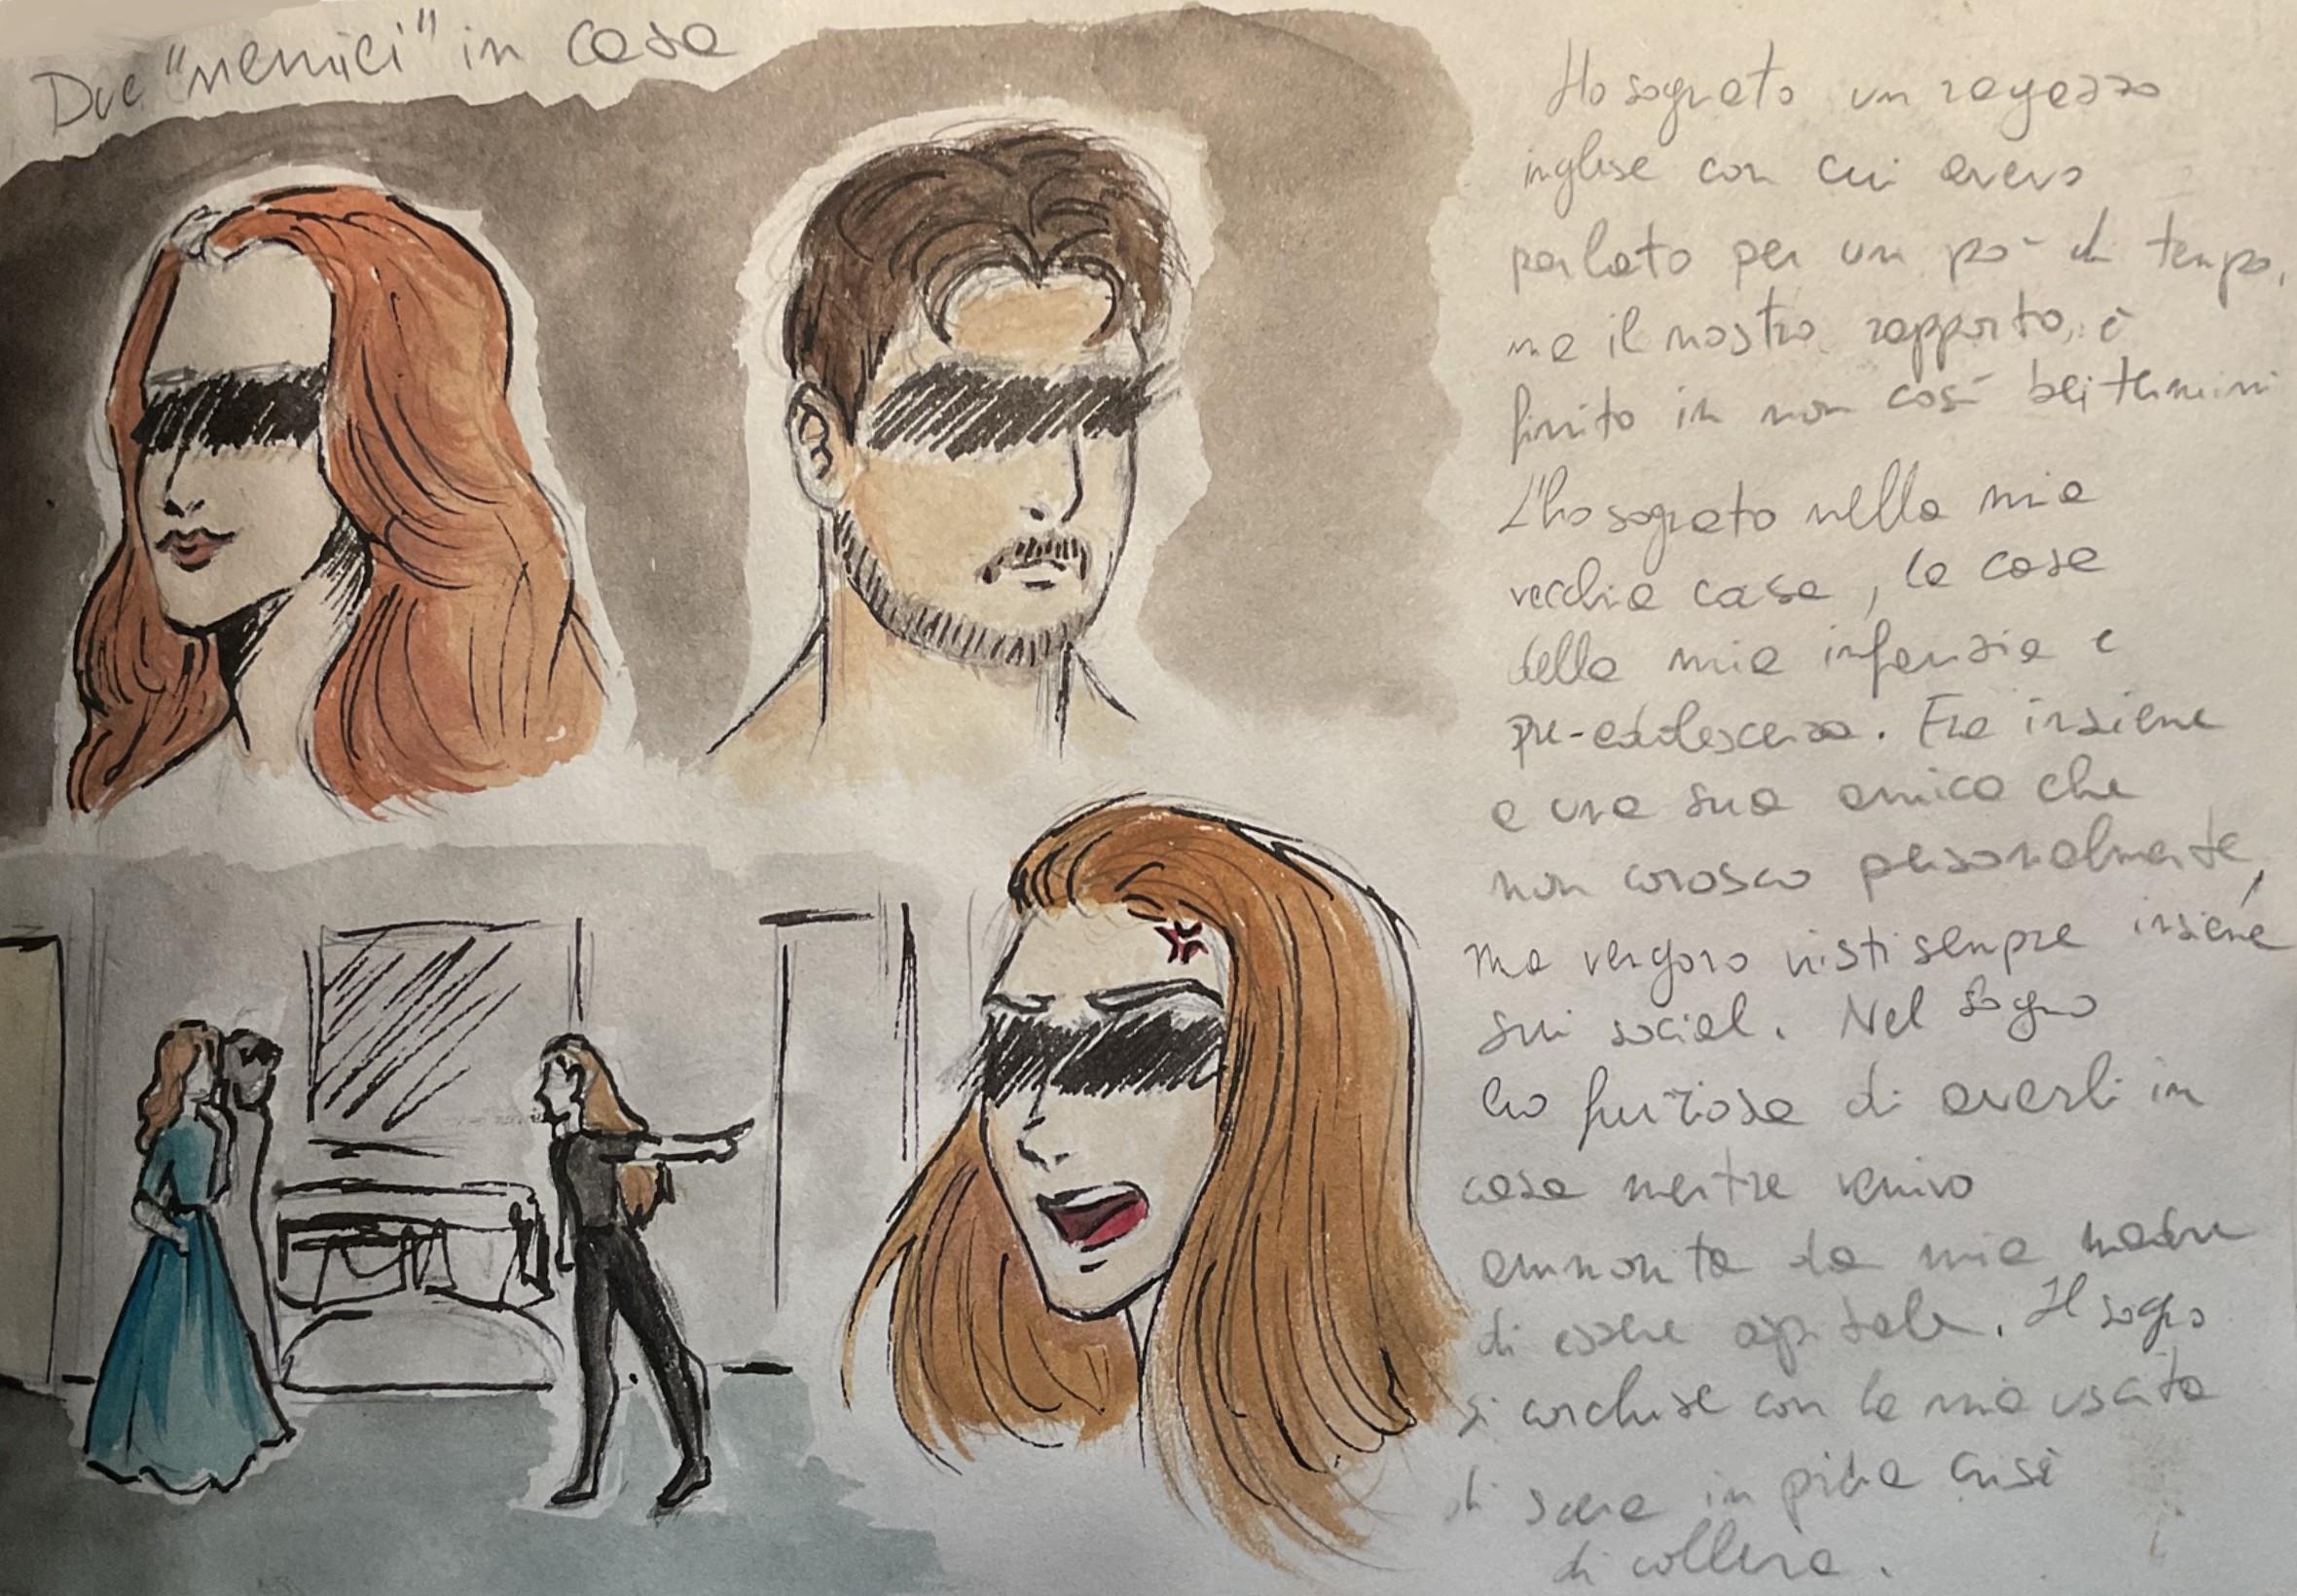 Due "nemici" in casa
Ho sognato un ragazzo
inglese con cui avevo
parlato per un pò di tempo,
ma il nostro rapporto è
finito in non così bei termini
L'ho sognato nella mia
vecchia casa, la casa
della mia infanzia e
pre-adolescenza. Era insieme
a una sua amica che
non conosco personalmente,
ma vengono visti sempre insieme
sui social. Nel sogno
ero furiosa di averli in
casa mentre venivo
ammonita da mia madre
di essere ospitale. Il sogno
si concluse con la mia uscita
di scena in piena crisi
di collera.